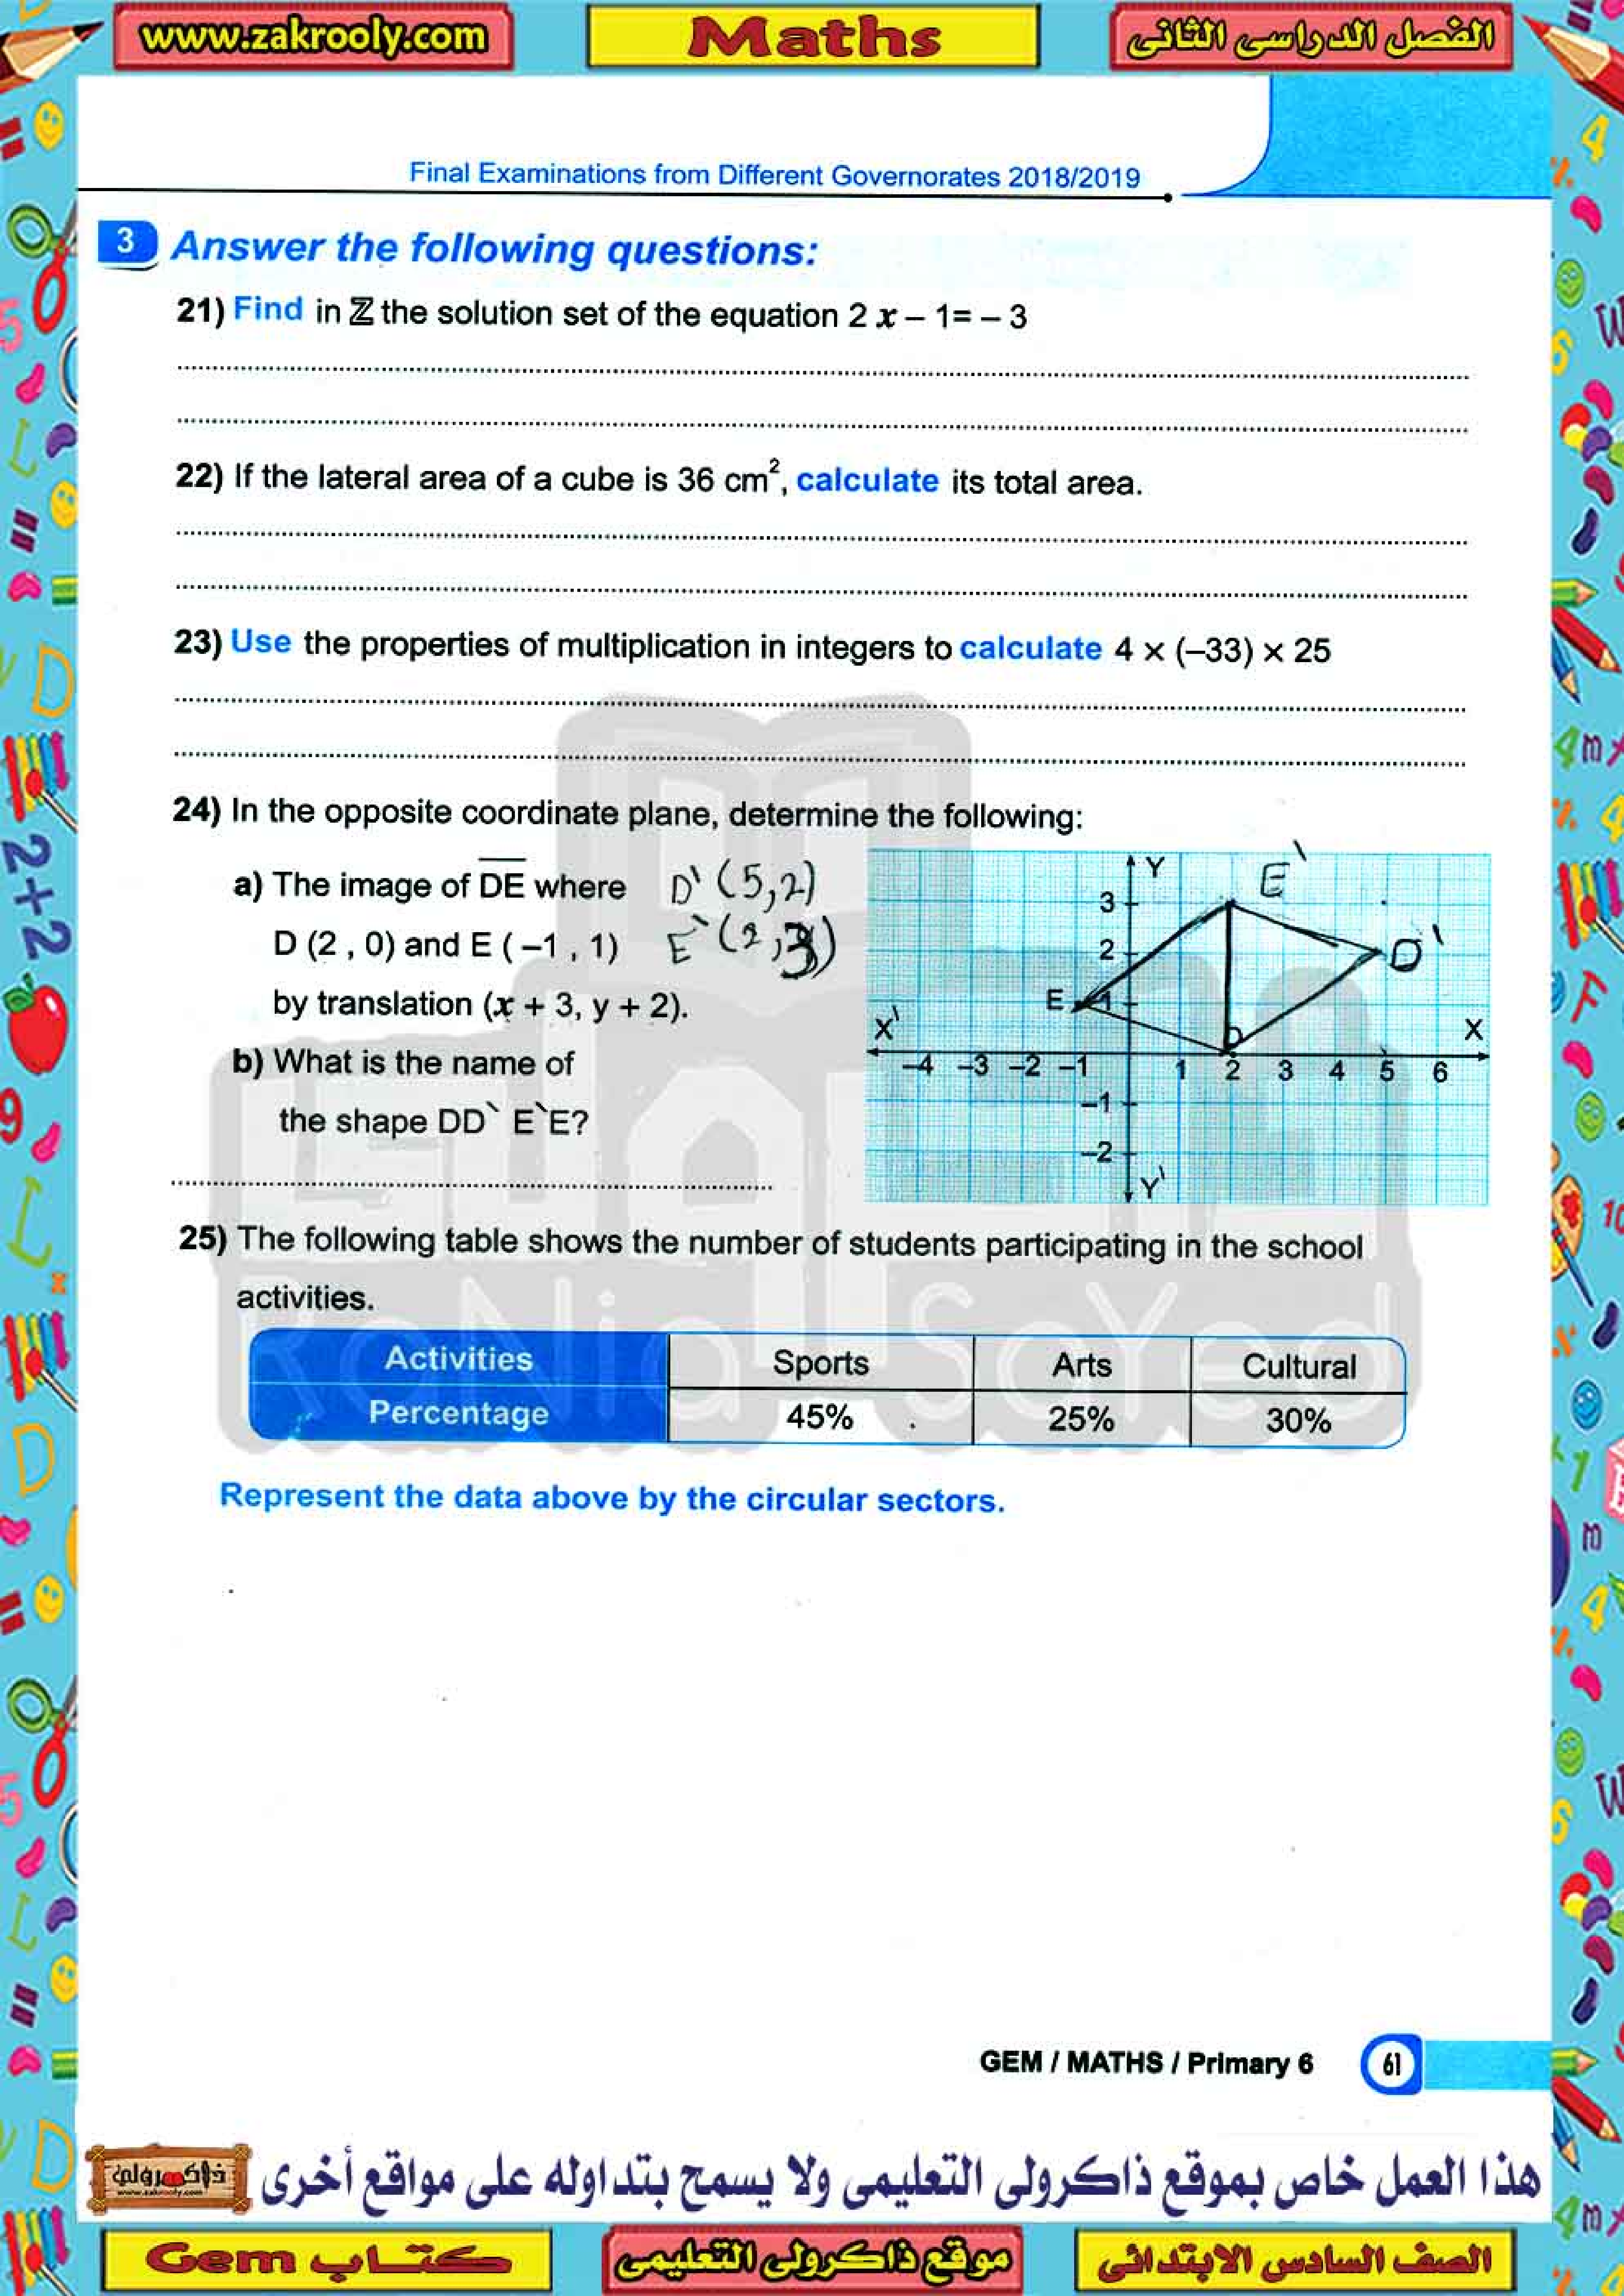 www.zakrooly.com
Maths
الفصل الدراسى الثانى
Final Examinations from Different Governorates 2018/2019
3 Answer the following questions:
21) Find in ℤ the solution set of the equation 2 x – 1= – 3
22) If the lateral area of a cube is 36 cm², calculate its total area.
23) Use the properties of multiplication in integers to calculate 4 × (–33) × 25
24) In the opposite coordinate plane, determine the following:
a) The image of DE where
D (2 , 0) and E ( –1 , 1)
by translation (x + 3, y + 2).
D' (5,2)
E` (2,3)
b) What is the name of
the shape DD` E`E?
Y
E`
3
2
D'
E
1
X'
D
X
–4 –3 –2 –1 1 2 3 4 5 6
–1
–2
Y'
25) The following table shows the number of students participating in the school
activities.
Activities Sports Arts Cultural
Percentage 45% 25% 30%
Represent the data above by the circular sectors.
RaNia SaYed
GEM / MATHS / Primary 6 61
هذا العمل خاص بموقع ذاكرولى التعليمى ولا يسمح بتداوله على مواقع أخرى
ذاكرولى
www.zakrooly.com
كتاب Gem
موقع ذاكرولى التعليمى
الصف السادس الابتدائى